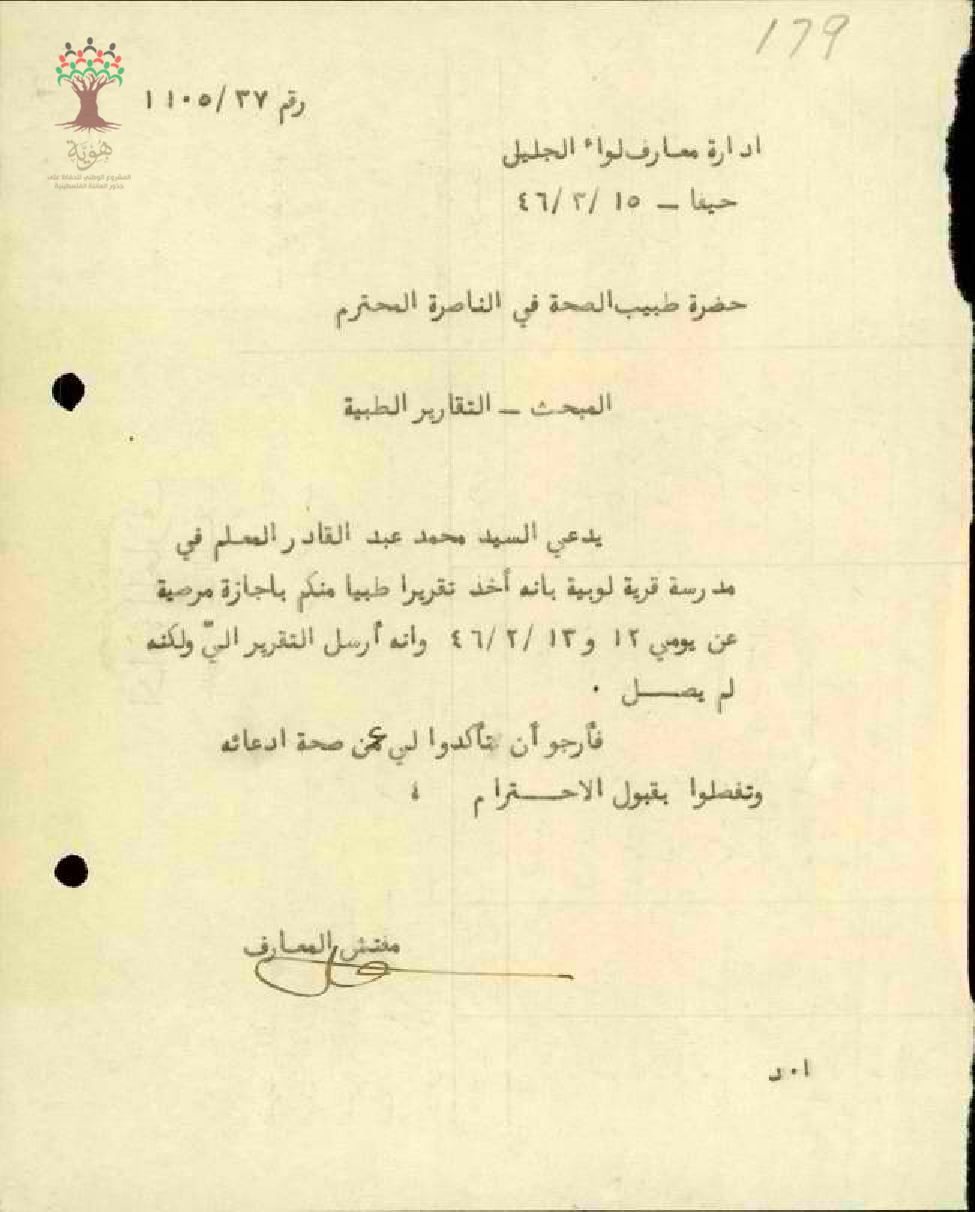 179
هوية
المشروع الوطني للحفاظ على
جذور العائلة الفلسطينية
رقم ٣٧/ ١١٠٥
ادارة معارف لواء الجليل
حيفا – ١٥ /٣ /٤٦
حضرة طبيب الصحة في الناصرة المحترم
المبحث – التقارير الطبية
يدعي السيد محمد عبد القادر المعلم في
مدرسة قرية لوبية بانه أخذ تقريرا طبيا منكم باجازة مرضية
عن يومي ١٢ و ١٣ /٢ /٤٦ وانه أرسل التقرير اليّ ولكنه
لم يصــــل ٠
فأرجو أن تأكدوا لي عن صحة ادعائه
وتفضلوا بقبول الاحــــترام ،
مفتش المعارف
ا٠د